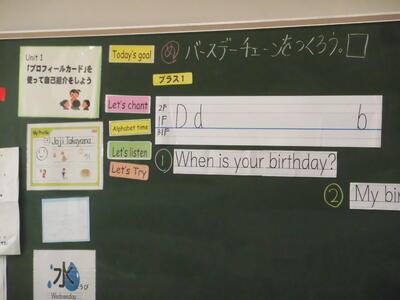 Unit 1
「プロフィールカード」を
使って自己紹介をしよう
Today's goal
め バースデーチェーンをつくろう。
プラス1
Let's chant
Alphabet time
Let's listen
Let's Try
2F
1F
B1F
D d
b
My Profile
Joji Takayama
① When is your birthday?
② My bir
水
ようび
Wednesday